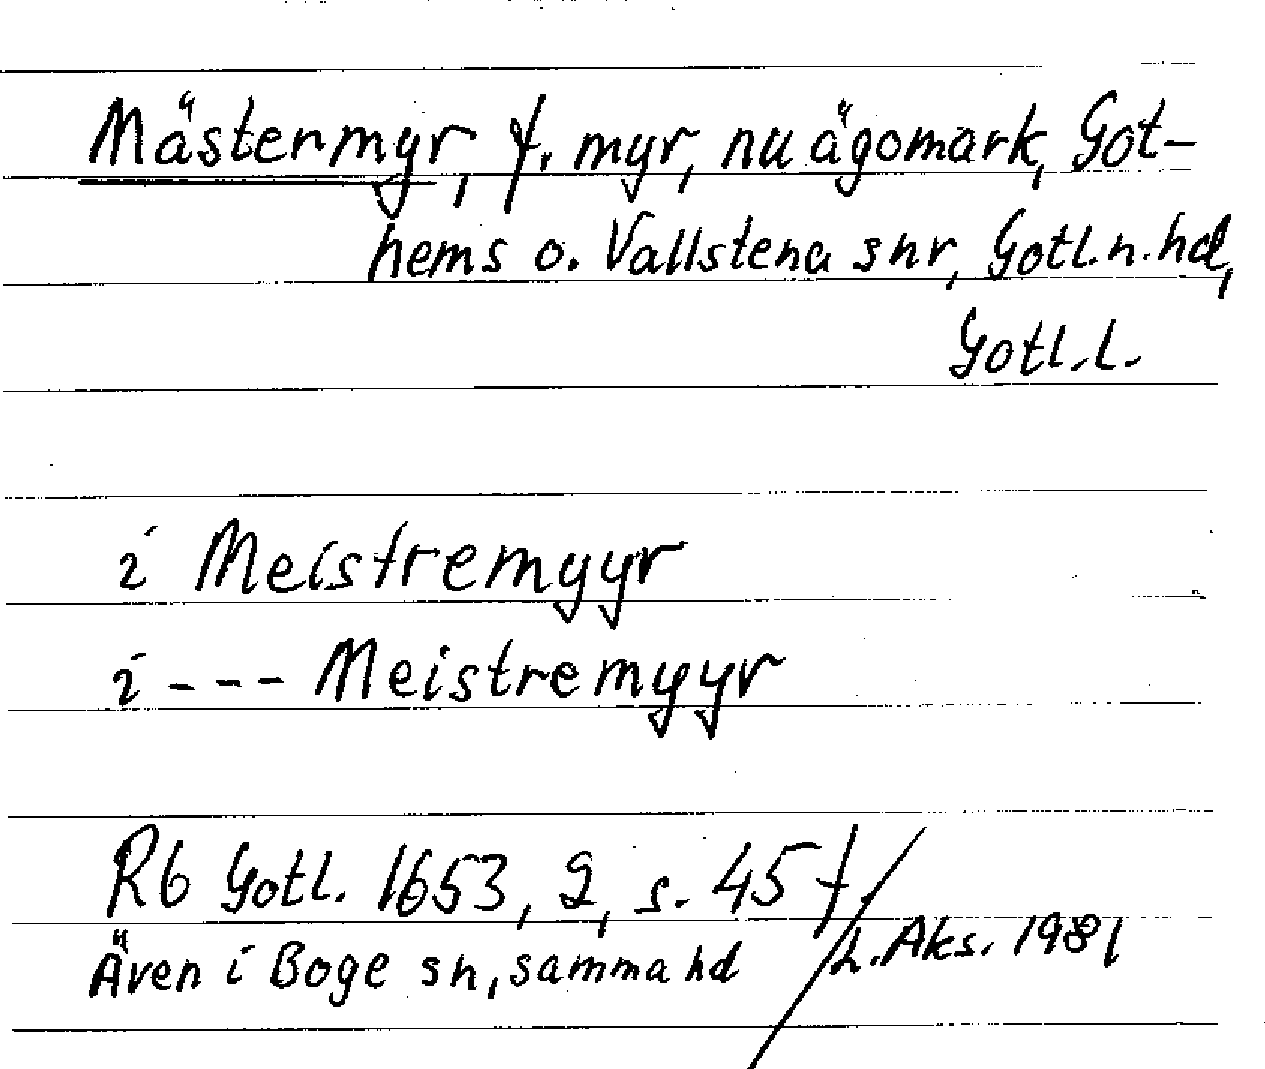 Mästermyr, f. myr, nu ägomark, Got-
hems o. Vallstena snr, Gotl. n. hd,
Gotl. l.
i Meistremyyr
i --- Meistremyyr
Rb Gotl. 1653, 2, s. 45 f.
Även i Boge sn, samma hd / L. Aks. 1981